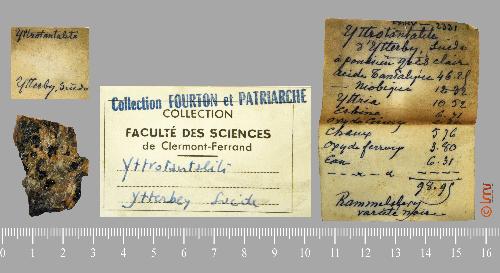 Yttrotantalite
Ytterby, Suède
Collection FOURTON et PATRIARCHE
COLLECTION
FACULTÉ DES SCIENCES
de Clermont-Ferrand
Yttrotantalite
Ytterbey Suède
2331
Yttrotantalite
d'Ytterby, Suède
à poussière gris clair
acide Tantalique 46.25
— Niobique 12.32
Yttria 10.52
Erbine 6.71
Oxyde
Chaux 5.76
Oxyde ferreux 3.80
Eau 6.31
98.95
Rammelsberg
variété noire
0 1 2 3 4 5 6 7 8 9 10 11 12 13 14 15 16